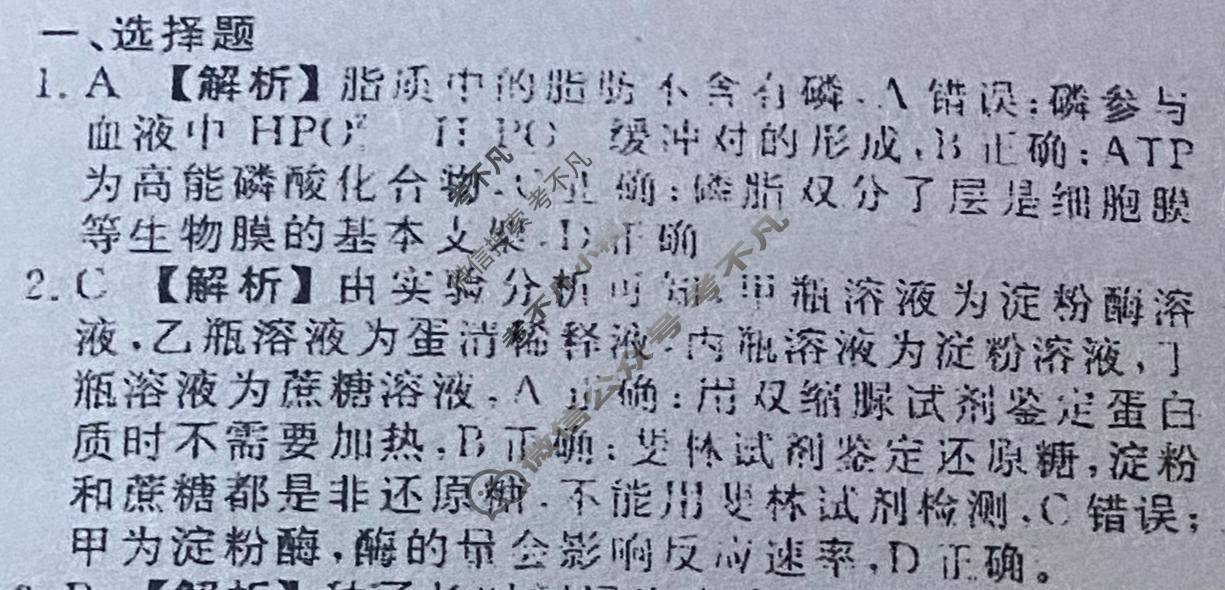 一、选择题
1. A 【解析】脂质中的脂肪不含有磷,A 错误;磷参与
血液中 HPO 缓冲对的形成,B 正确;ATP
为高能磷酸化合物,C 正确;磷脂双分子层是细胞膜
等生物膜的基本支架,D 正确
2. C 【解析】由实验分析可知,甲瓶溶液为淀粉酶溶
液,乙瓶溶液为蛋清稀释液,丙瓶溶液为淀粉溶液,丁
瓶溶液为蔗糖溶液,A 正确;用双缩脲试剂鉴定蛋白
质时不需要加热,B 正确;斐林试剂鉴定还原糖,淀粉
和蔗糖都是非还原糖,不能用斐林试剂检测,C 错误;
甲为淀粉酶,酶的量会影响反应速率,D 正确。
【解析】